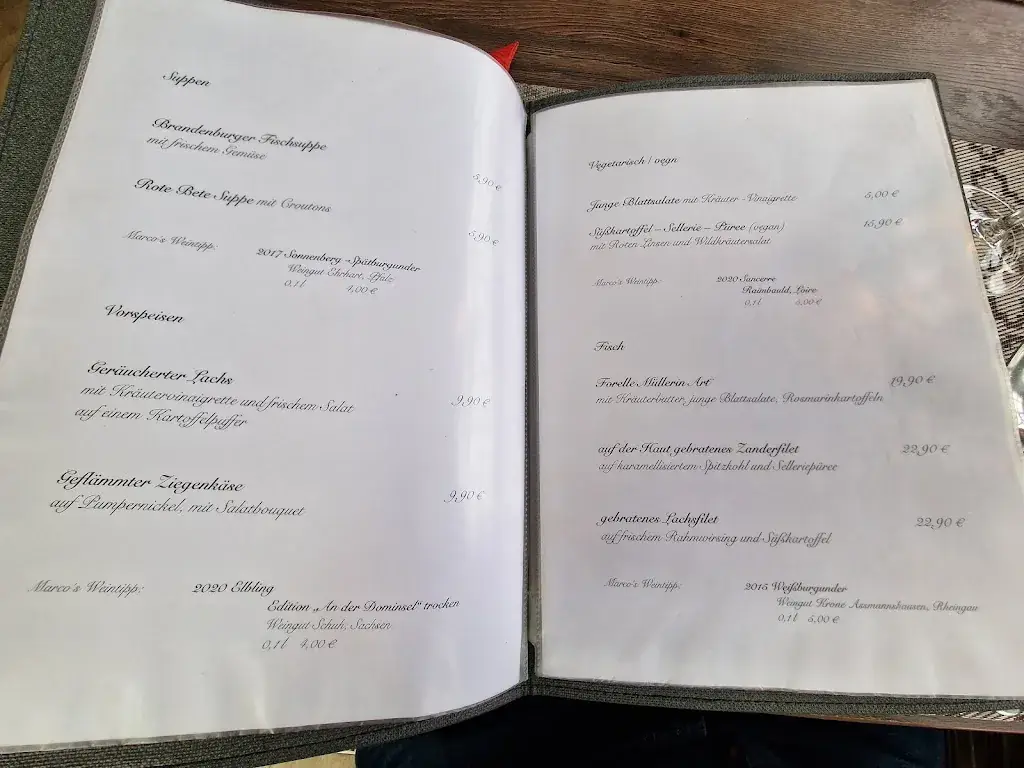 Suppen
Brandenburger Fischsuppe
mit frischem Gemüse
5,90 €
Rote Bete Suppe mit Croutons
5,90 €
Marco's Weintipp:
2017 Sonnenberg -Spätburgunder
Weingut Ehrhart, Pfalz
0,1 l 4,00 €
Vorspeisen
Geräucherter Lachs
mit Kräutervinaigrette und frischem Salat 9,90 €
auf einem Kartoffelpuffer
Geflämmter Ziegenkäse 9,90 €
auf Pumpernickel, mit Salatbouquet
Marco's Weintipp: 2020 Elbling
Edition „An der Dominsel“ trocken
Weingut Schuh, Sachsen
0,1 l 4,00 €
Vegetarisch / vegn
Junge Blattsalate mit Kräuter -Vinaigrette 5,00 €
Süßkartoffel – Sellerie – Püree (vegan) 15,90 €
mit Roten Linsen und Wildkräutersalat
Marco's Weintipp: 2020 Sancerre
Raimbauld, Loire
0,1 l 5,00 €
Fisch
Forelle Müllerin Art 19,90 €
mit Kräuterbutter, junge Blattsalate, Rosmarinkartoffeln
auf der Haut gebratenes Zanderfilet 22,90 €
auf karamellisiertem Spitzkohl und Selleriepüree
gebratenes Lachsfilet 22,90 €
auf frischem Rahmwirsing und Süßkartoffel
Marco's Weintipp: 2015 Weißburgunder
Weingut Krone Assmannshausen, Rheingau
0,1 l 5,00 €